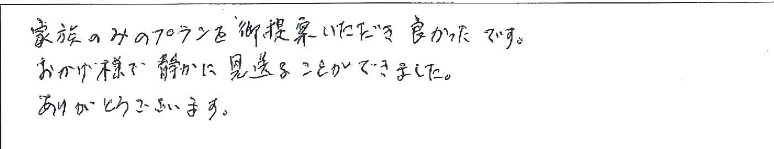 家族のみのプランを御提案いただき良かったです。
おかげ様で静かに見送ることができました。
ありがとうございます。